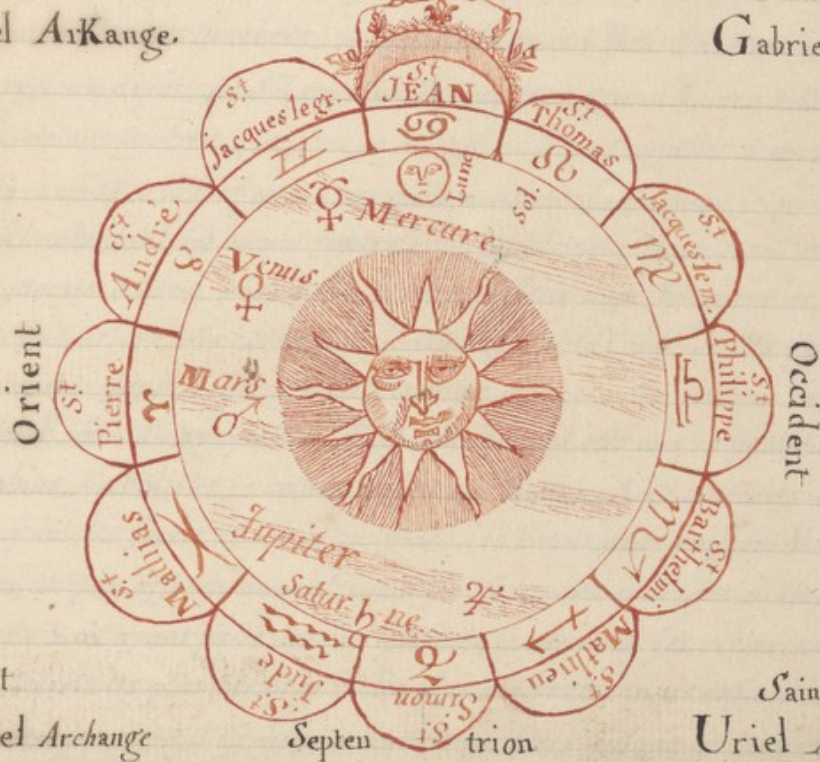 el ArKange.
Gabrie
St
JEAN
St
Thomas
St
Jacques le m.
St
Philippe
St
Barthelmi
St
Mathieu
St
Simon
St
Jude
St
Mathias
St
Pierre
St
André
St
Jacques le gr.
♋
♌
♍
♎
♏
♐
♑
♒
♓
♈
♉
♊
Lune
Sol.
☿ Mercure
Venus
♀
Mars
♂
Jupiter
♃
Satur ♄ ne
Orient
Occident
t
el Archange
Septen trion
Sain
Uriel